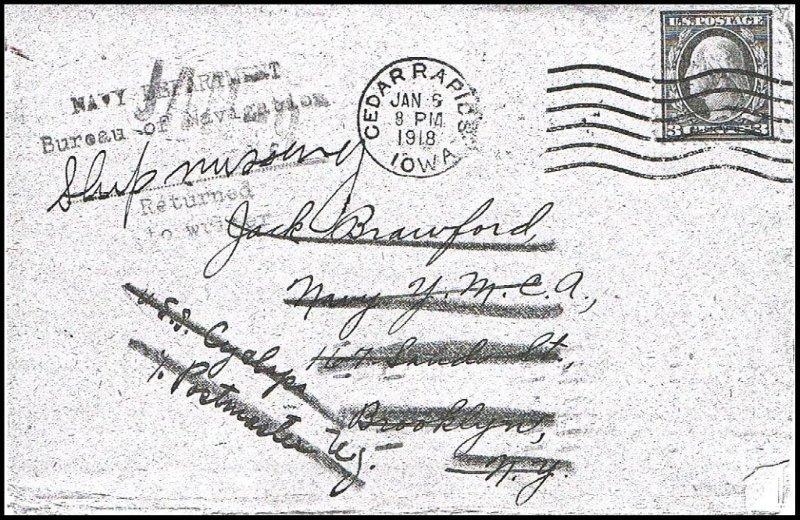 U.S. POSTAGE
3 CENTS 3
CEDAR RAPIDS
JAN 6
8 PM
1918
IOWA
NAVY DEPARTMENT
Bureau of Navigation
Ship missing
Returned
to writer
Jack Brawford,
Navy Y.M.C.A.,
167 Sands St.,
Brooklyn,
N.Y.
U.S.S. Cyclops
% Postmaster N.Y.